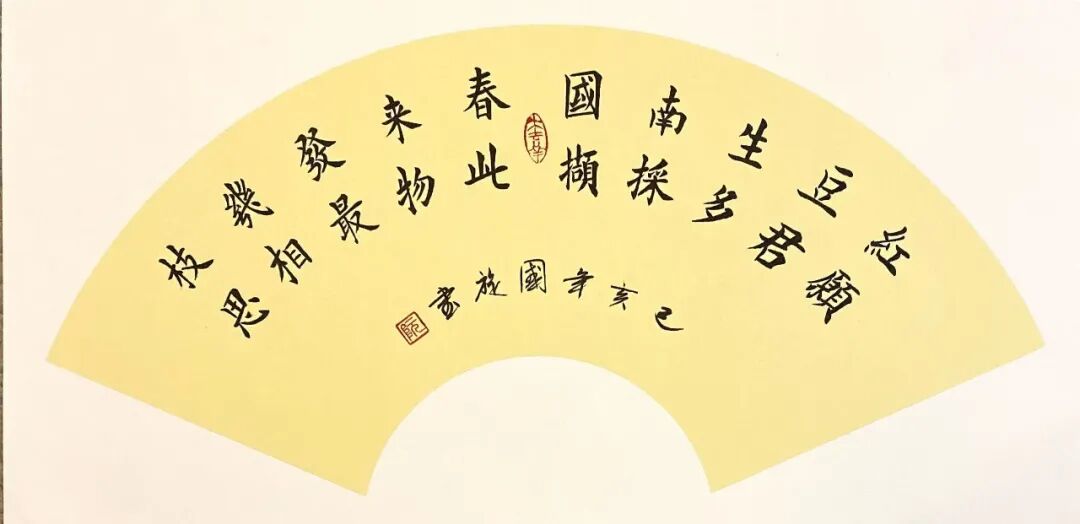 紅豆生南國春来發幾枝
願君多採擷此物最相思
己亥年國旋書
阮